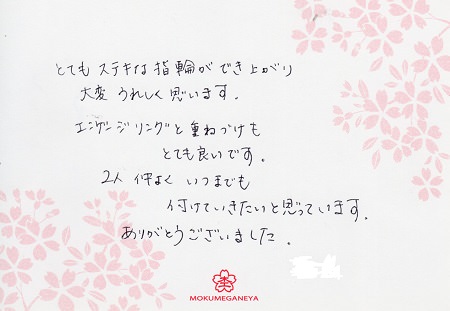 とても ステキな 指輪が でき上がり
大変 うれしく 思います。
エンゲージリングと重ねづけも
とても良いです。
2人 仲よく いつまでも
付けていきたいと思っています。
ありがとうございました。
MOKUMEGANEYA